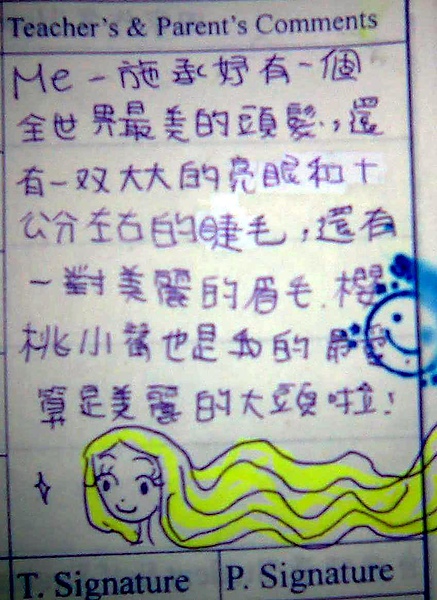 Teacher's & Parent's Comments
Me - 施承妤有一個
全世界最美的頭髮,還
有一双大大的亮眼和十
公分左右的睫毛,還有
一對美麗的眉毛.櫻
桃小嘴也是我的最愛
算是美麗的大頭啦!
T. Signature
P. Signature